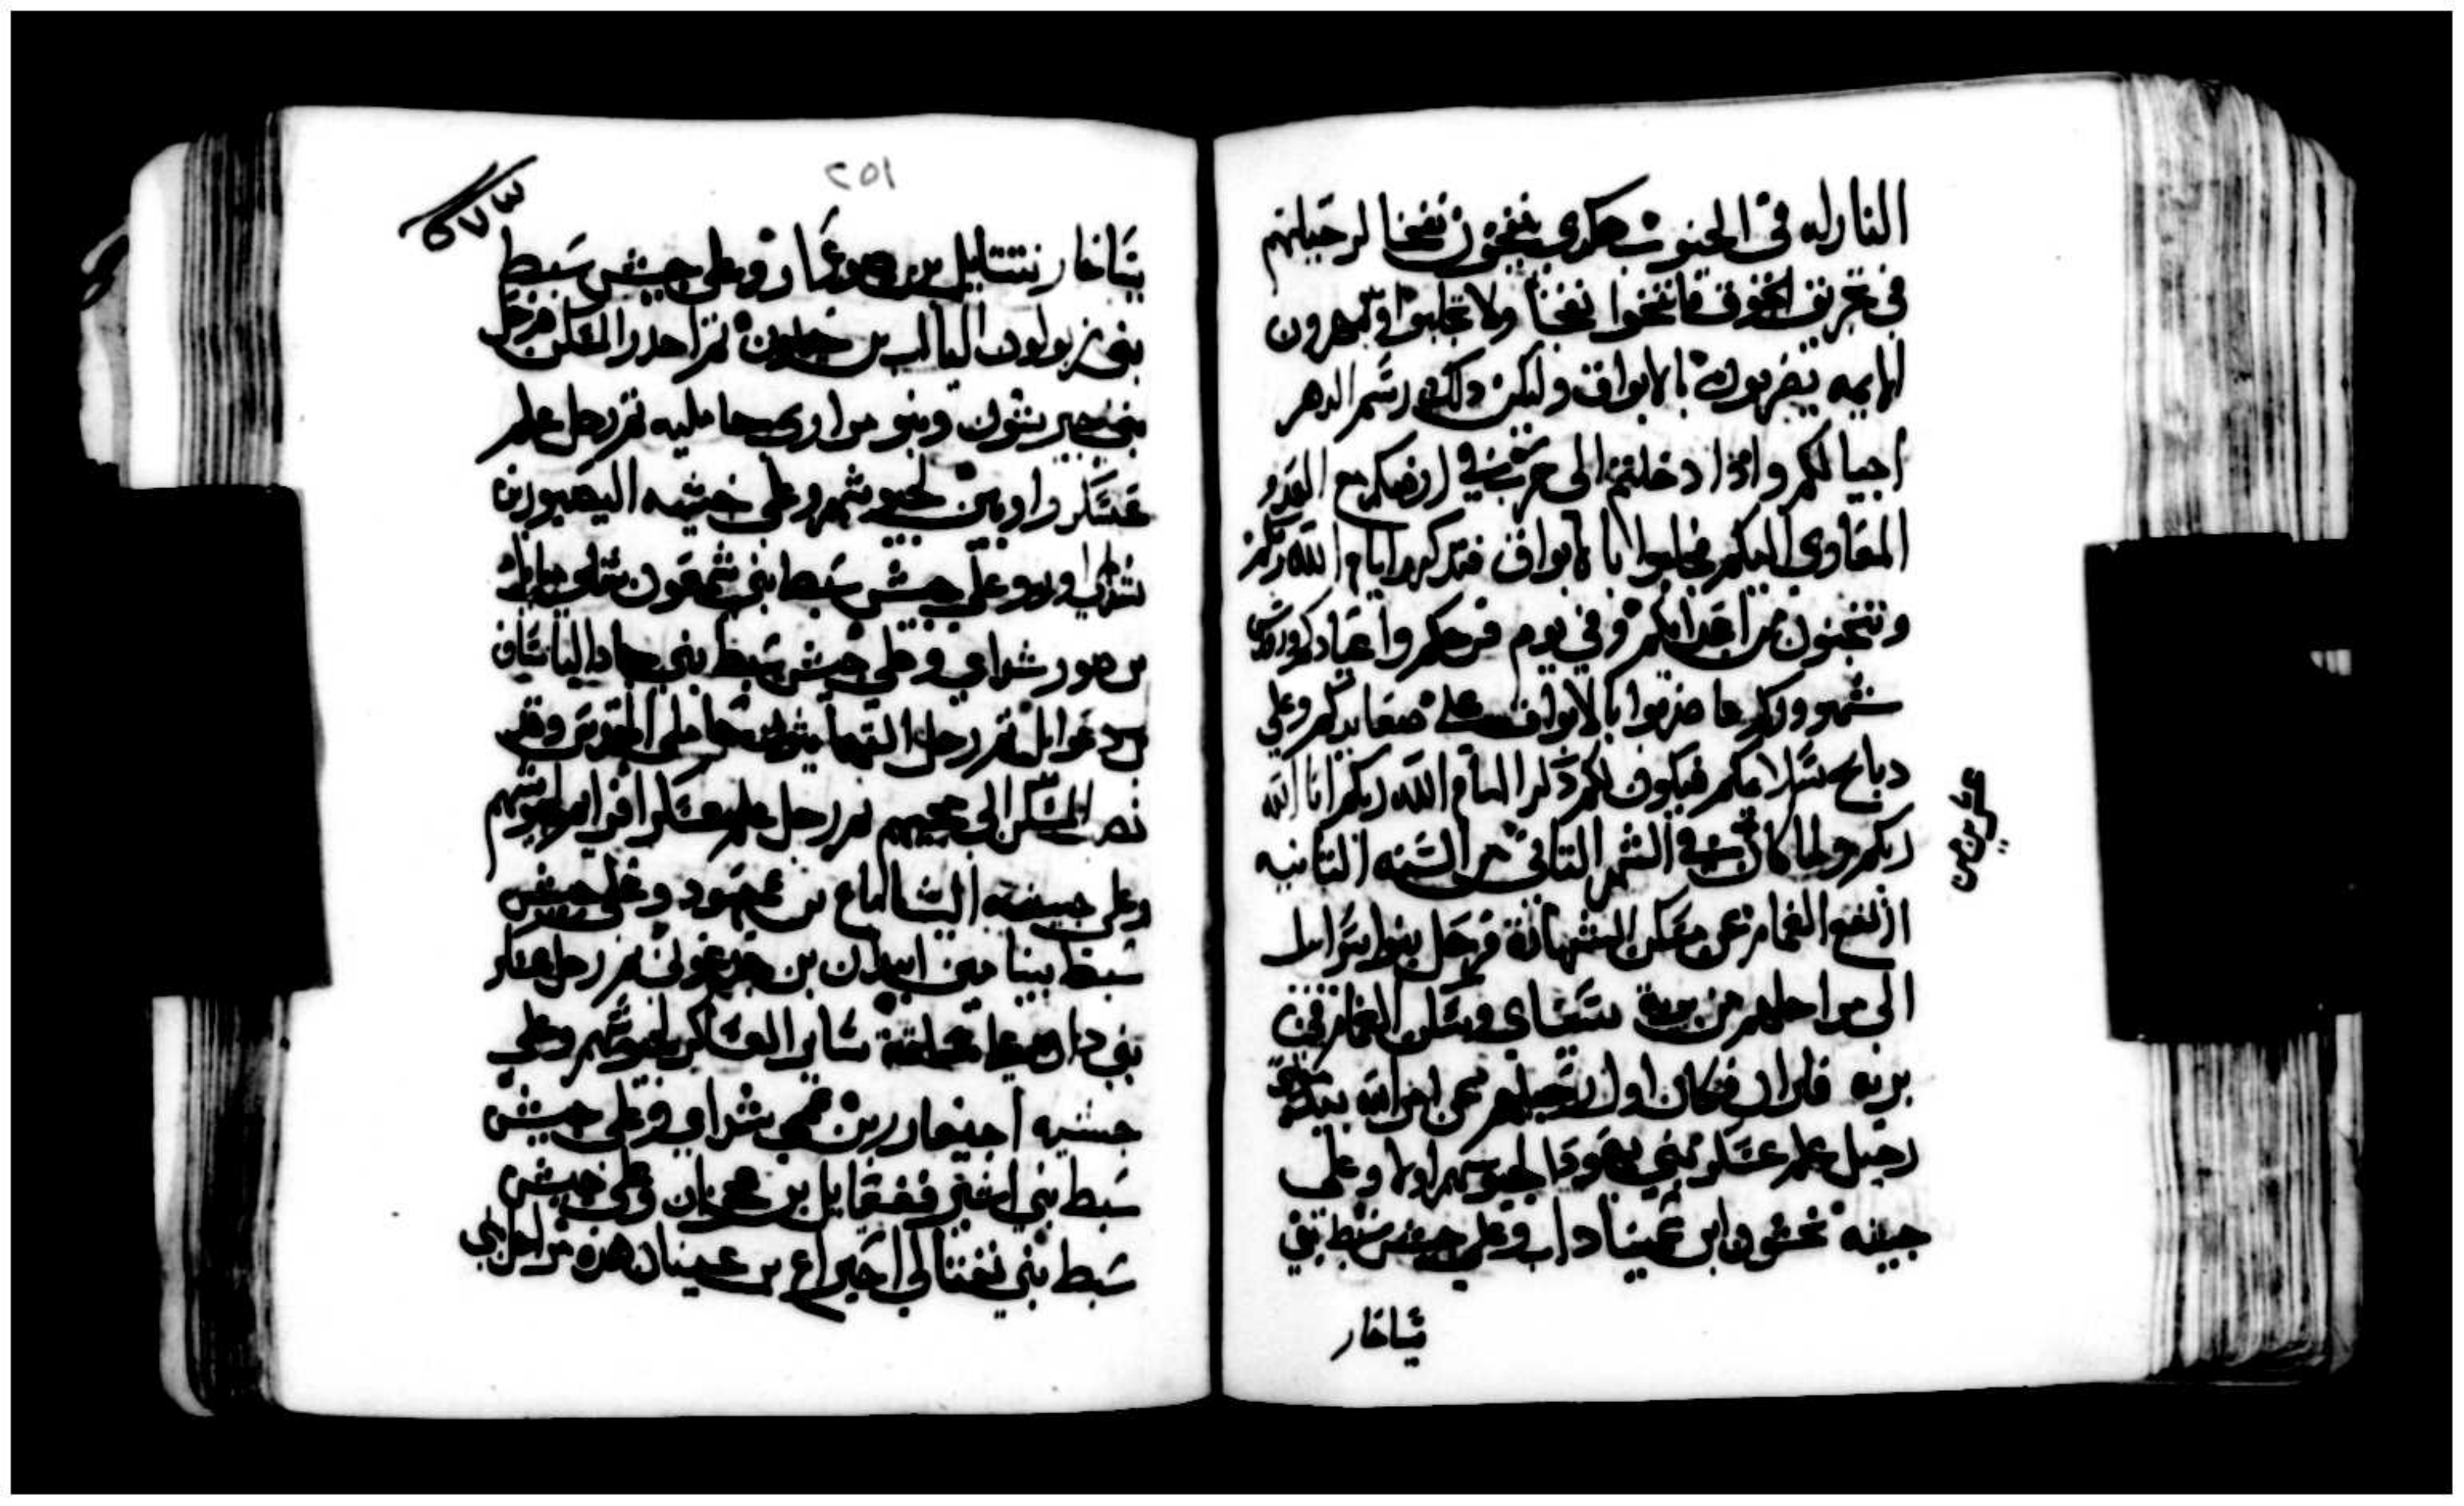 النازله في الجنوب هكدي ينفخون نفخا لرحيلهم
في تجويق الجوق فانفخوا نفخا ولا تجلبوا وبنو هرون
الايمه يضربون بالابواق وليكن دلك رسم الدهر
اجيالكم واذا دخلتم الى حرب في ارضكم مع العدو
المعاوي اليكم فجلبوا بالابواق فتدكروا امام الله ربكم
وتنجون من اعدايكم وفي يوم فرحكم واعيادكم وروس
شهوركم فاضربوا بالابواق على صعايدكم وعلى
دبايح سلامكم فيكون لكم ذكرا امام الله ربكم انا الله
ربكم ولما كان في الشهر التاني من السنه التانيه
ارتفع الغمام عن مسكن الشهادة فرحل بنوا اسرايل
الى مراحلهم من برية سيناى وسكن الغمام في
بريه فاران فكان اول رحيلهم عن امر الله بيد موسى
رحيل علم عسكر بني يهودا لجيوشهم اولا وعلى
جيشه نحشون ابن عميناداب وعلى جيش سبط بني
يساخار
عشرين من
٢٥١
٥٧٣
يساخار نتنايل بن صوغار وعلى جيش سبط
بني زبولون الياب بن حيلون ثم احدر المسكن فرحل
بني جيرشون وبنو مراري حامليه ثم رحل علم
عسكر راوبين لجيوشهم وعلى جيشه اليصور بن
شداوور وعلى جيش سبط بني شمعون شلوميايل
بن صور شداي وعلى جيش سبط بني جاد الياساف
بن دعوايل ثم رحل القهاثيون حاملي القدس وقد
نصب المسكن الى مجيهم ثم رحل علم عسكر افرايم لجيوشهم
وعلى جيشه اليشاماع بن عميهود وعلى جيش
سبط بنيامين ابيدان بن جدعوني ثم رحل عسكر
بني دان جامعا ساير العساكر لجيوشهم وعلى
جيشه احيعازر بن عمي شداي وعلى جيش
سبط بني اشير فجعيايل بن عخران وعلى جيش
سبط بني نفتالي احيراع بن عينان هذه مراحل بني